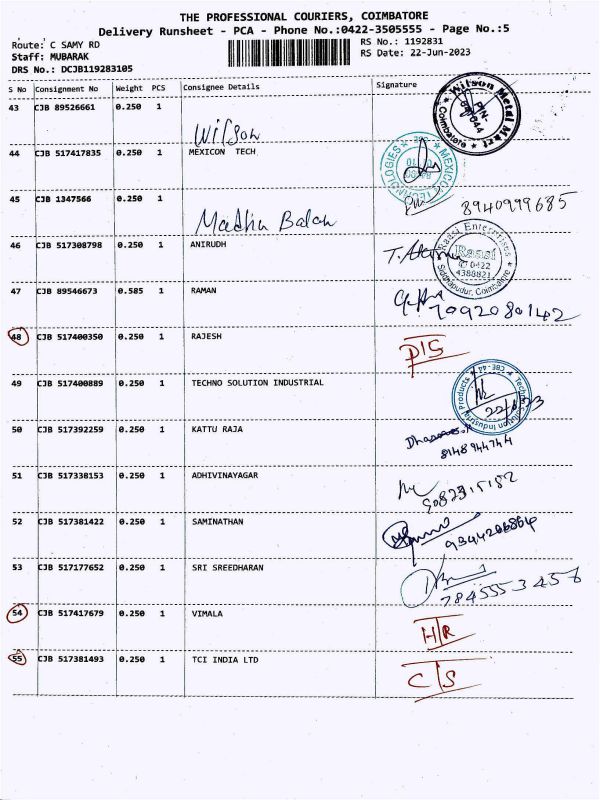 THE PROFESSIONAL COURIERS, COIMBATORE
Delivery Runsheet - PCA - Phone No.:0422-3505555 - Page No.:5
Route: C SAMY RD
RS No.: 1192831
Staff: MUBARAK
RS Date: 22-Jun-2023
DRS No.: DCJB119283105
S No Consignment No Weight PCS Consignee Details Signature
43 CJB 89526661 0.250 1 Wilson
Wilson Metal Mart Coimbatore
44 CJB 517417835 0.250 1 MEXICON TECH
MEXICON TECHNOLOGIES
45 CJB 1347566 0.250 1 Madhu Balan 8940999685
46 CJB 517308798 0.250 1 ANIRUDH
Raasi Enterprises Raasi 0422 4388821 Siddhapudur, Coimbatore
47 CJB 89546673 0.585 1 RAMAN 7092080142
48 CJB 517400350 0.250 1 RAJESH D/S
49 CJB 517400889 0.250 1 TECHNO SOLUTION INDUSTRIAL
Techno Solution Industry Products CBE-44 22/6/23
50 CJB 517392259 0.250 1 KATTU RAJA 8148944744
51 CJB 517338153 0.250 1 ADHIVINAYAGAR
52 CJB 517381422 0.250 1 SAMINATHAN 9344206864
53 CJB 517177652 0.250 1 SRI SREEDHARAN 7845553457
54 CJB 517417679 0.250 1 VIMALA H/R
55 CJB 517381493 0.250 1 TCI INDIA LTD C/S